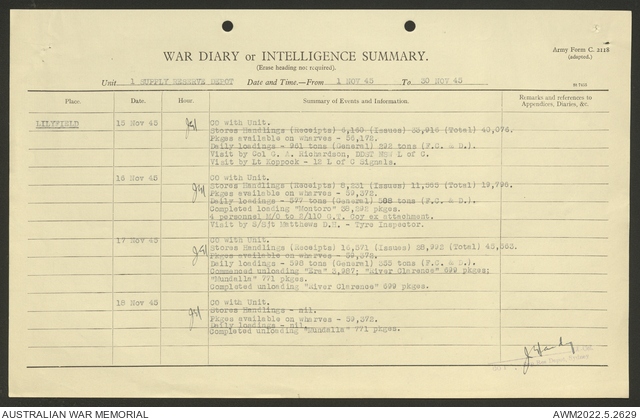 Army Form C. 2118
(adapted.)
WAR DIARY or INTELLIGENCE SUMMARY.
(Erase heading not required).
Unit 1 SUPPLY RESERVE DEPOT Date and Time.—From 1 NOV 45 To 30 NOV 45
Place. Date. Hour. Summary of Events and Information. Remarks and references to Appendices, Diaries, &c.
LILYFIELD 15 Nov 45 CO with Unit.
Stores Handlings (Receipts) 6,160 (Issues) 33,916 (Total) 40,076.
Pkges available on wharves - 56,172.
Daily loadings - 961 tons (General) 292 tons (F.C. & D.).
Visit by Col G. A. Richardson, DDST NSW L of C.
Visit by Lt Koppock - 12 L of C Signals.
16 Nov 45 CO with Unit.
Stores Handlings (Receipts) 8,231 (Issues) 11,565 (Total) 19,796.
Pkges available on wharves - 59,372.
Daily loadings - 577 tons (General) 508 tons (F.C. & D.).
Completed loading "Montoro" 58,292 pkges.
4 personnel M/O to 2/110 G.T. Coy ex attachment.
Visit by S/Sjt Matthews D.R. - Tyre Inspector.
17 Nov 45 CO with Unit.
Stores Handlings (Receipts) 16,571 (Issues) 28,992 (Total) 45,563.
Pkges available on wharves - 59,372.
Daily loadings - 598 tons (General) 335 tons (F.C. & D.).
Commenced unloading "Era" 3,987; "River Clarence" 699 pkges;
"Mundalla" 771 pkges.
Completed unloading "River Clarence" 699 pkges.
18 Nov 45 CO with Unit.
Stores Handlings - nil.
Pkges available on wharves - 59,372.
Daily loadings - nil.
Completed unloading "Mundalla" 771 pkges.
AUSTRALIAN WAR MEMORIAL
AWM2022.5.2629